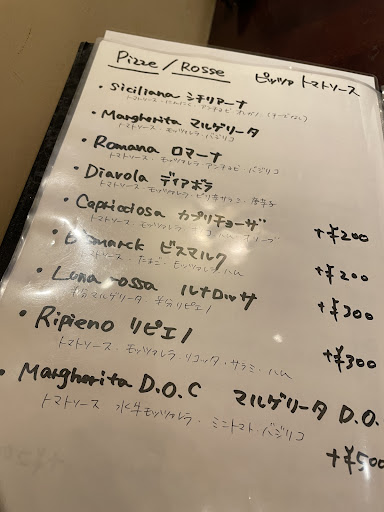 Pizze / Rosse ピッツァ トマトソース
・Siciliana シチリアーナ
トマトソース・にんにく・アンチョビ・オレガノ (チーズなし)
・Margherita マルゲリータ
トマトソース・モッツァレラ・バジリコ
・Romana ロマーナ
トマトソース・モッツァレラ・アンチョビ バジリコ
・Diavola ディアボラ
トマトソース・モッツァレラ・ピリ辛サラミ・唐辛子
・Capricciosa カプリチョーザ +¥200
トマトソース・モッツァレラ・
・Bismarck ビスマルク +¥200
トマトソース・たまご・モッツァレラ・ハム
・Luna rossa ルナロッサ +¥300
半分マルゲリータ・半分リピエノ
・Ripieno リピエノ +¥300
トマトソース・モッツァレラ・リコッタ・サラミ・ハム
・Margherita D.O.C マルゲリータ D.O.
トマトソース 水牛モッツァレラ・ミニトマト・バジリコ
+¥500